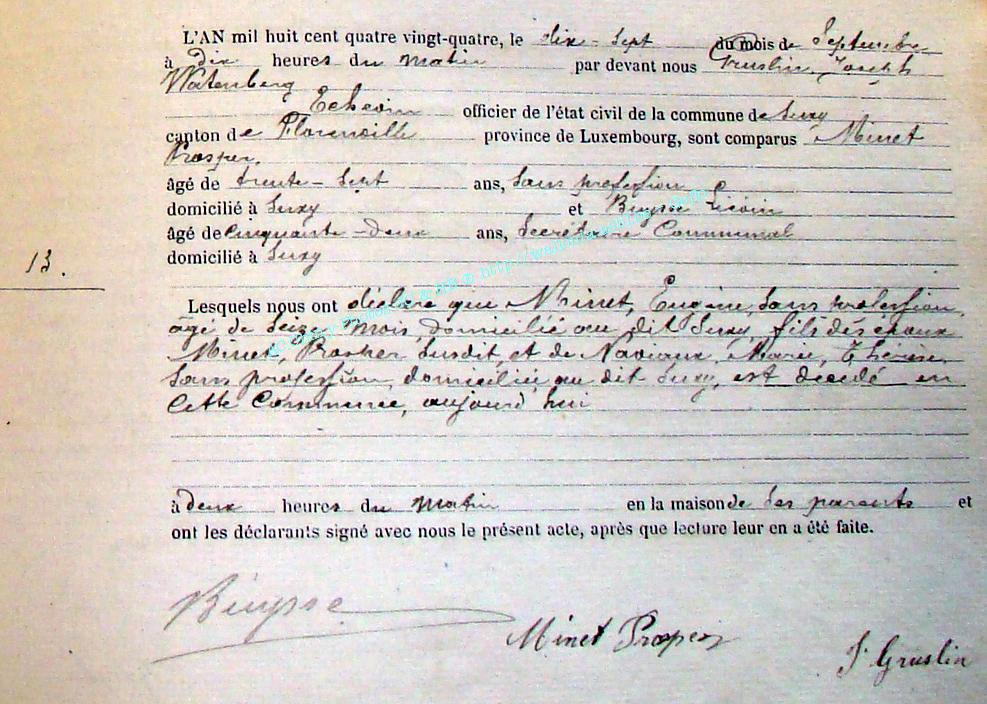 L'AN mil huit cent quatre vingt-quatre, le dix-sept du mois de Septembre
à dix heures du matin par devant nous Gruslin, Joseph
Watenberg
Echevin officier de l'état civil de la commune de Suxy
canton de Florenville province de Luxembourg, sont comparus Minet
Prosper,
âgé de trente-sept ans, sans profession
domicilié à Suxy et Buysse
âgé de cinquante-deux ans, Secrétaire Communal
domicilié à Suxy
13.
Lesquels nous ont déclaré que Minet, Eugène, sans profession,
âgé de seize mois, domicilié au dit Suxy, fils des époux
Minet, Prosper, susdit, et de Naviaux, Marie, Thérèse,
sans profession, domiciliée au dit Suxy, est décédé en
cette Commune, aujourd'hui
à deux heures du matin en la maison de ses parents et
ont les déclarants signé avec nous le présent acte, après que lecture leur en a été faite.
Buysse
Minet Prosper
J. Gruslin